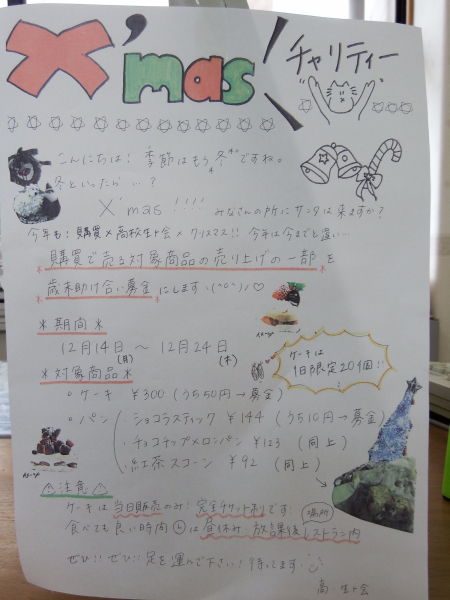 X'mas
チャリティー
こんにちは! 季節はもう冬ですね。
冬といったら…?
X'mas!!!! みなさんの所にサンタは来ますか?
今年も!購買×高校生ト会×クリスマス!! 今年は今までと違い…
購買で売る対象商品の売り上げの一部を
歳末助け合い募金にします\(^o^)/♡
*期間*
12月14日(月) 〜 12月24日(木)
ケーキは
1日限定20個!!
*対象商品*
。ケーキ ¥300 (うち50円→募金)
。パン
・ショコラスティック ¥144 (うち10円→募金)
・チョコチップメロンパン ¥123 (同上)
・紅茶スコーン ¥92 (同上)
イメージ
イメージ
△注意△
ケーキは当日販売のみ!完全チケット制です!
食べても良い時間は昼休み・放課後 場所 レストラン内
ぜひ!!ぜひ!!足を運んで下さい!待ってます
高 生ト会